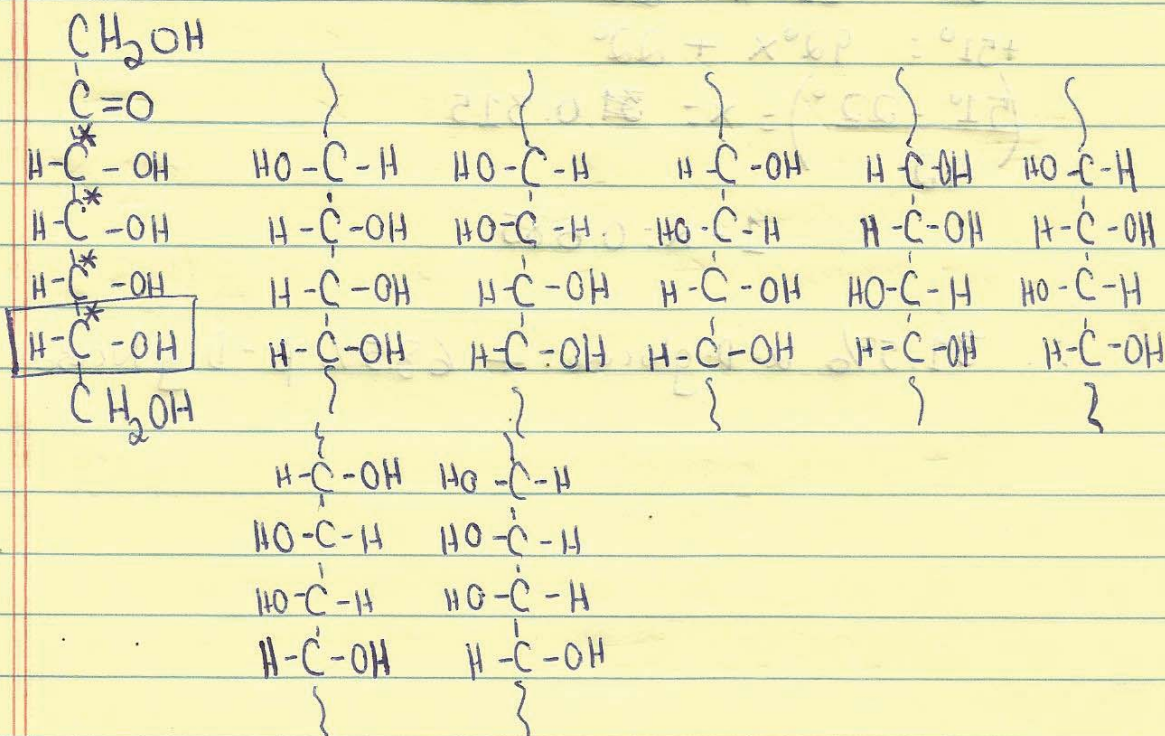 CH2OH
C=O
H-C*-OH HO-C-H HO-C-H H-C-OH H-C-OH HO-C-H
H-C*-OH H-C-OH HO-C-H HO-C-H H-C-OH H-C-OH
H-C*-OH H-C-OH H-C-OH H-C-OH HO-C-H HO-C-H
H-C*-OH H-C-OH H-C-OH H-C-OH H-C-OH H-C-OH
CH2OH
H-C-OH HO-C-H
HO-C-H HO-C-H
HO-C-H HO-C-H
H-C-OH H-C-OH